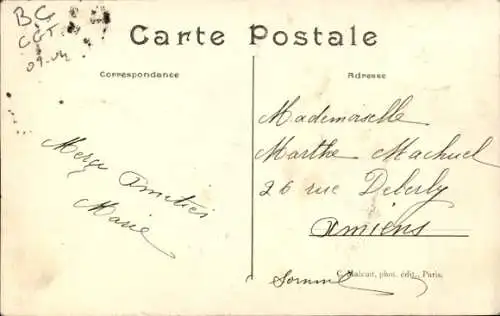 BG
CGT
09.04
Carte Postale
Correspondance
Adresse
Merci Amitiés
Marie
Mademoiselle
Marthe Machuel
26 rue Deberly
Amiens
Somme
phot. édit., Paris.